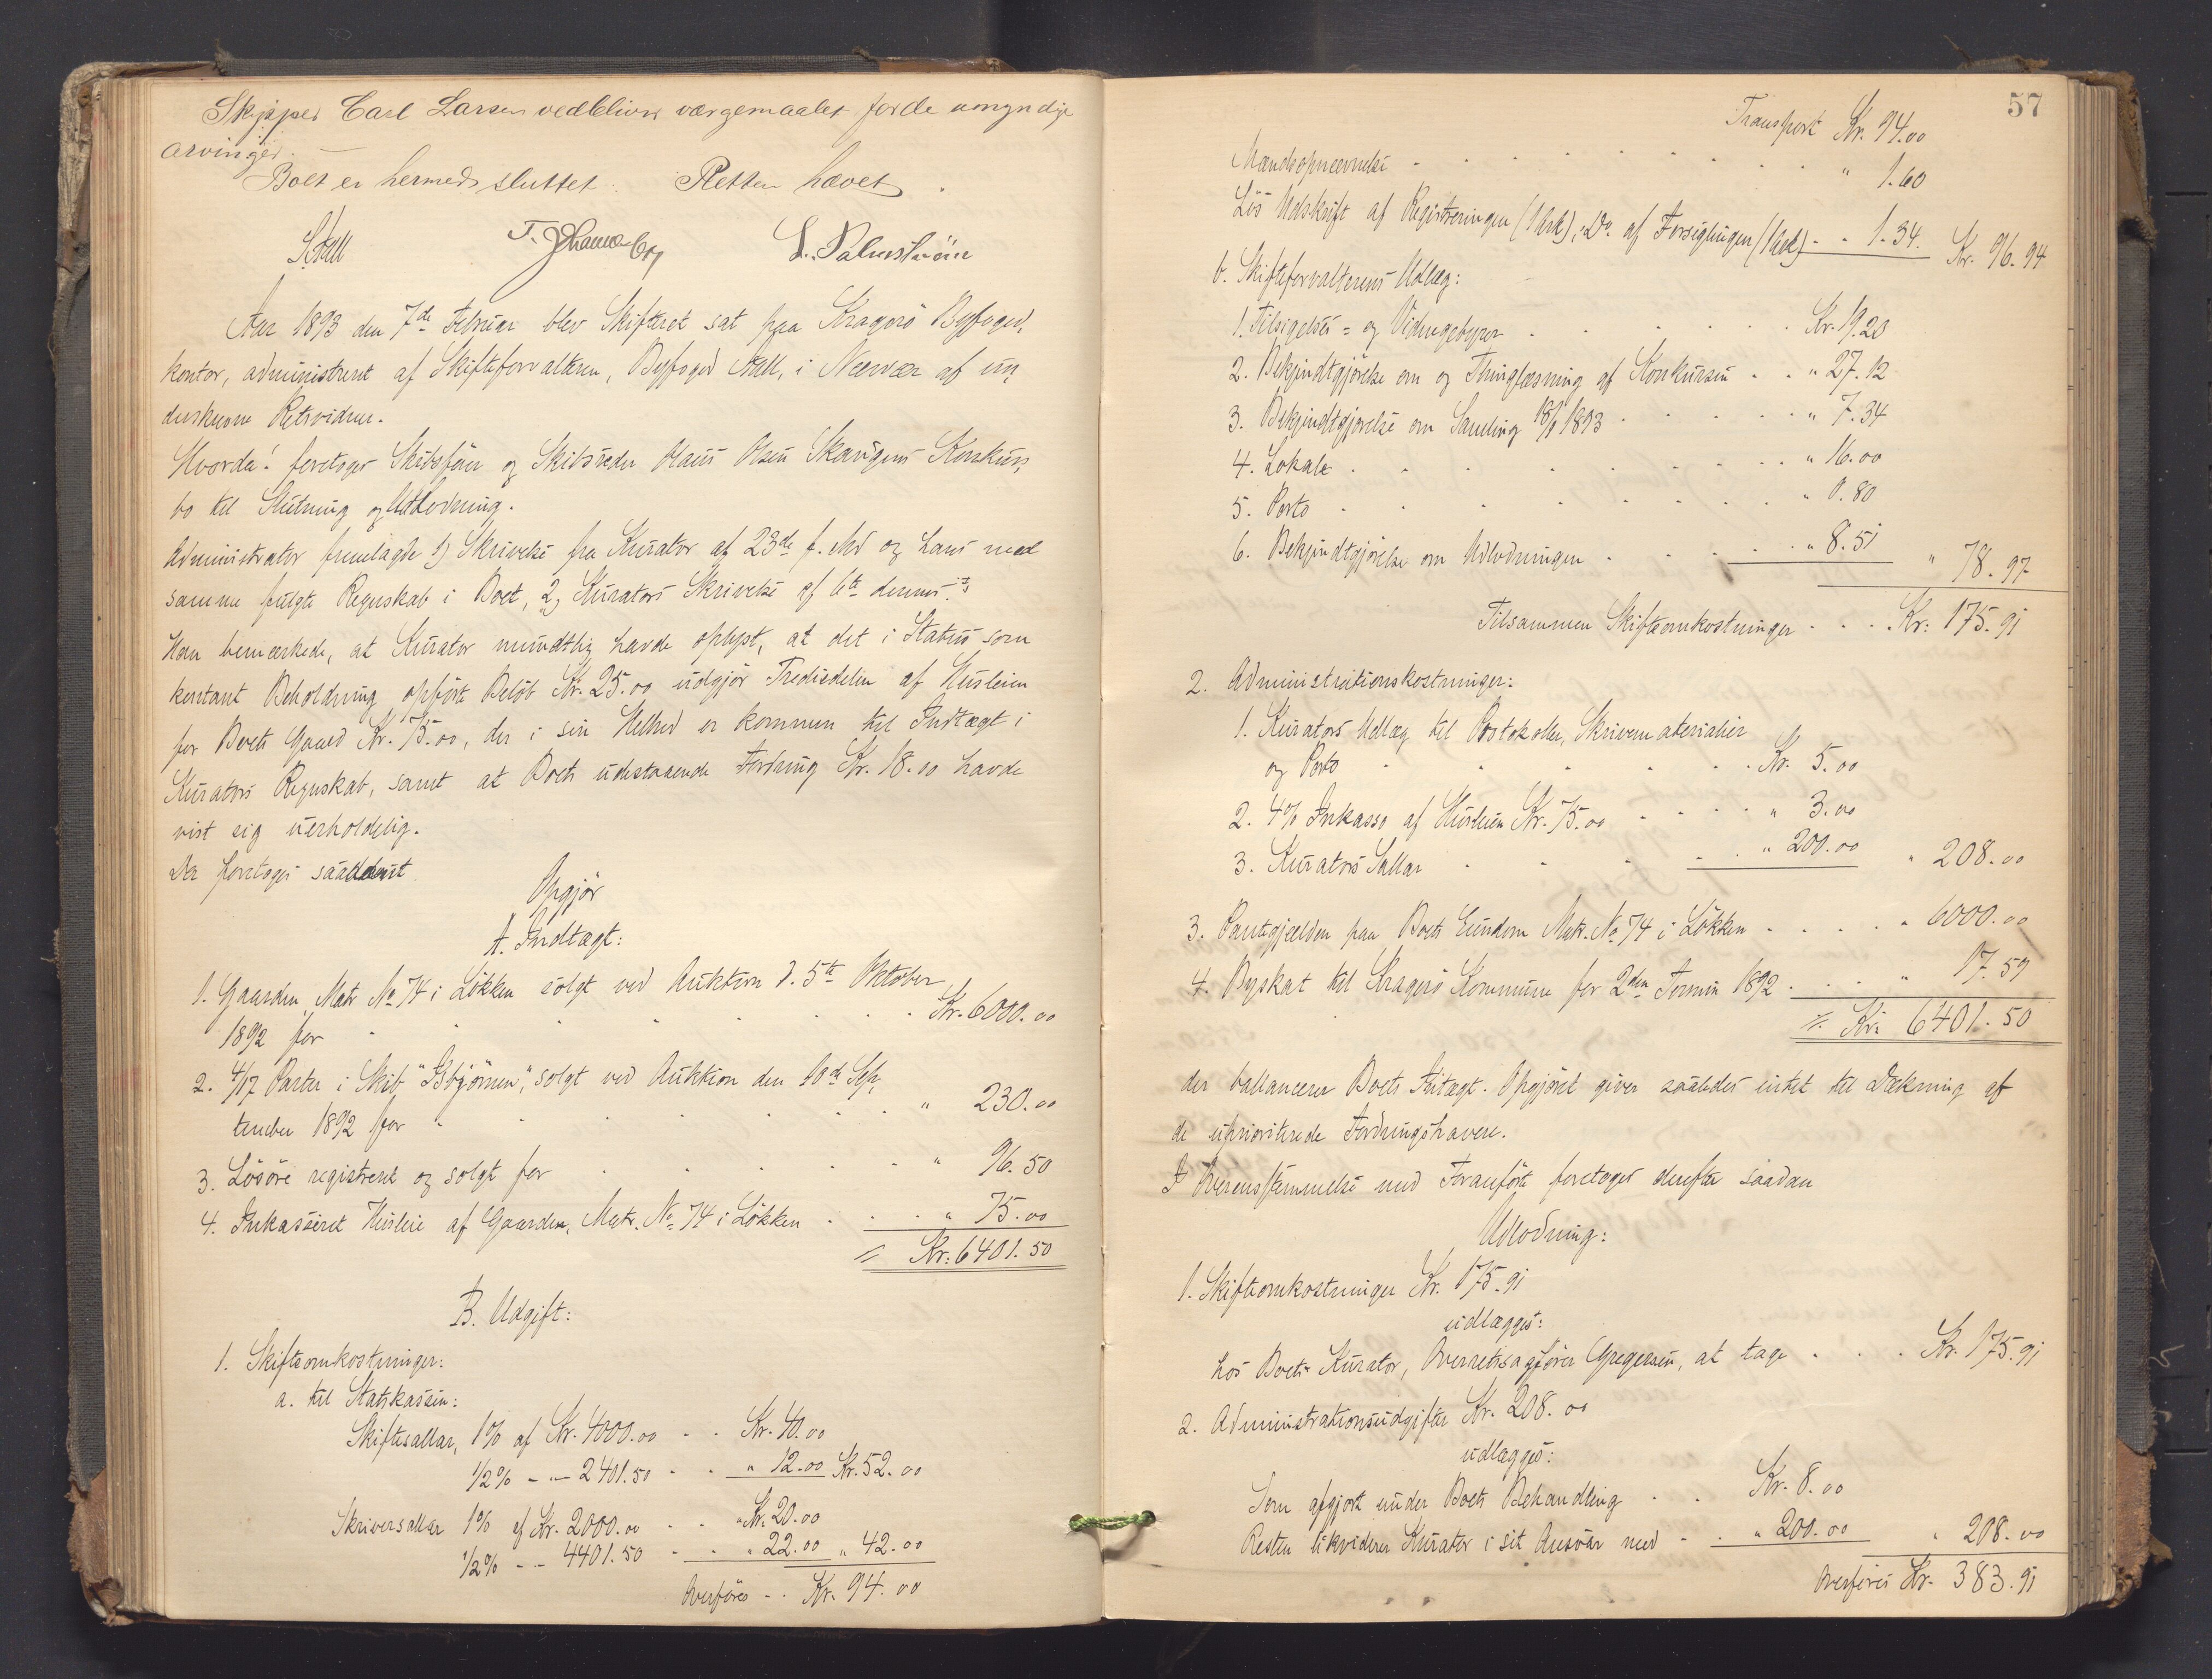 Skipper Carl Larsen vedbliver værgemaalet for de umyndige
arvinger. —
Boet er hermed sluttet. Retten hævet.
Aar 1893 den 7de Februar blev Skifteret sat paa Kragerö Byfoged,
kontor, administreret af Skifteforvalteren, Byfoged Stall, i Nærvær af un,
derskrevne Retsvidner.
Hvorda! foretoges Skibsförer og Skibsreder Olaus Olsen Skarigens Konkurs,
bo til Slutning og Udlodning.
Administrator fremlagde 1) Skrivelse fra Kurator af 23de f. Md og hans med
samme fulgte Regnskab i Boet, 2) Kurators Skrivelse af 6te dennes.
Han bemærkede, at Kurator mundtlig havde oplyst, at det i Status som
kontant Beholdning opförte Belöb Kr. 25.00 udgjör Trediedelen af Husleien
for Boets Gaard Kr. 75.00, der i sin Helhed er kommen til Indtægt i
Kurators Regnskab, samt at Boets udestaaende Fordring Kr. 18.00 havde
vist sig uerholdelig.
Der foretoges saadant
Opgjör
A. Indtægt:
1. Gaarden, Matr No 74 i Lökken solgt ved Auktion d. 5te Oktober
1892 for . . . . . . Kr. 6000.00
2. 4/17 Parter i Skib "Isbjörnen", solgt ved Auktion den 10de Sep,
tember 1892 for . . . . . " 230.00
3. Lösöre registreret og solgt for . . . . " 96.50
4. Inkasseret Husleie af Gaarden, Matr. No 74 i Lökken . . . " 75.00
Kr. 6401.50
B. Udgift:
1. Skifteomkostninger:
a. til Statskassen:
Skiftesallar, 1% af Kr. 4000.00 - - Kr. 40.00
1/2% - - 2401.50 - - " 12.00 Kr. 52.00
Skriversallar 1% af Kr. 2000.00 - - Kr. 20.00
1/2% - - 4401.50 - - " 22.00 " 42.00
Overföres - - Kr. 94.00
57
Transport Kr. 94.00
Mandsopnævnelse . . . . . . " 1.60
Lös Udskrift af Registreringen (1 Ark), Do. af Forseglingen (1 Ark) - - 1.34. Kr. 96.94
b. Skifteforvalterens Udlæg:
1. Tilsigelses- og Vidnegebyrer . . . . Kr. 19.20
2. Bekjendtgjörelse om og Thinglæsning af Konkursen . . " 27.12
3. Bekjendtgjörelse om Samling 18/1 1893 . . . . " 7.34
4. Lokale . . . . . . " 16.00
5. Porto . . . . . . " 0.80
6. Bekjendtgjörelse om Udlodningen . . . . " 8.51 " 78.97
Tilsammen Skifteomkostninger . . . Kr. 175.91
2. Administrationskostninger:
1. Kurators Udlæg til Protokoller, Skrivematerialier
og Porto . . . . . Kr. 5.00
2. 4% Inkasso af Husleien Kr. 75.00 . . . . " 3.00
3. Kurators Sallar . . . . " 200.00 " 208.00
3. Pantegjælden paa Boets Eiendom Matr. No 74 i Lökken . . . . " 6000.00
4. Byskat til Kragerö Kommune for 2den Termin 1892 . . . " 17.59
Kr. 6401.50
der ballancerer Boets Indtægt. Opgjöret giver saaledes intet til Dækning af
de uprioriterede Fordringshavere.
I Overensstemmelse med Foranförte foretoges derefter saadan
Udlodning:
1. Skifteomkostninger Kr. 175.91
udlægges:
hos Boets Kurator, Overretssagförer Gregersen, at tage . . . Kr. 175.91
2. Administrationsudgifter Kr. 208.00
udlægges:
Som afgjort under Boets Behandling . . Kr. 8.00
Resten likviderer Kurator i sit Ansvar med - . " 200.00 " 208.00
Overföres Kr. 383.91